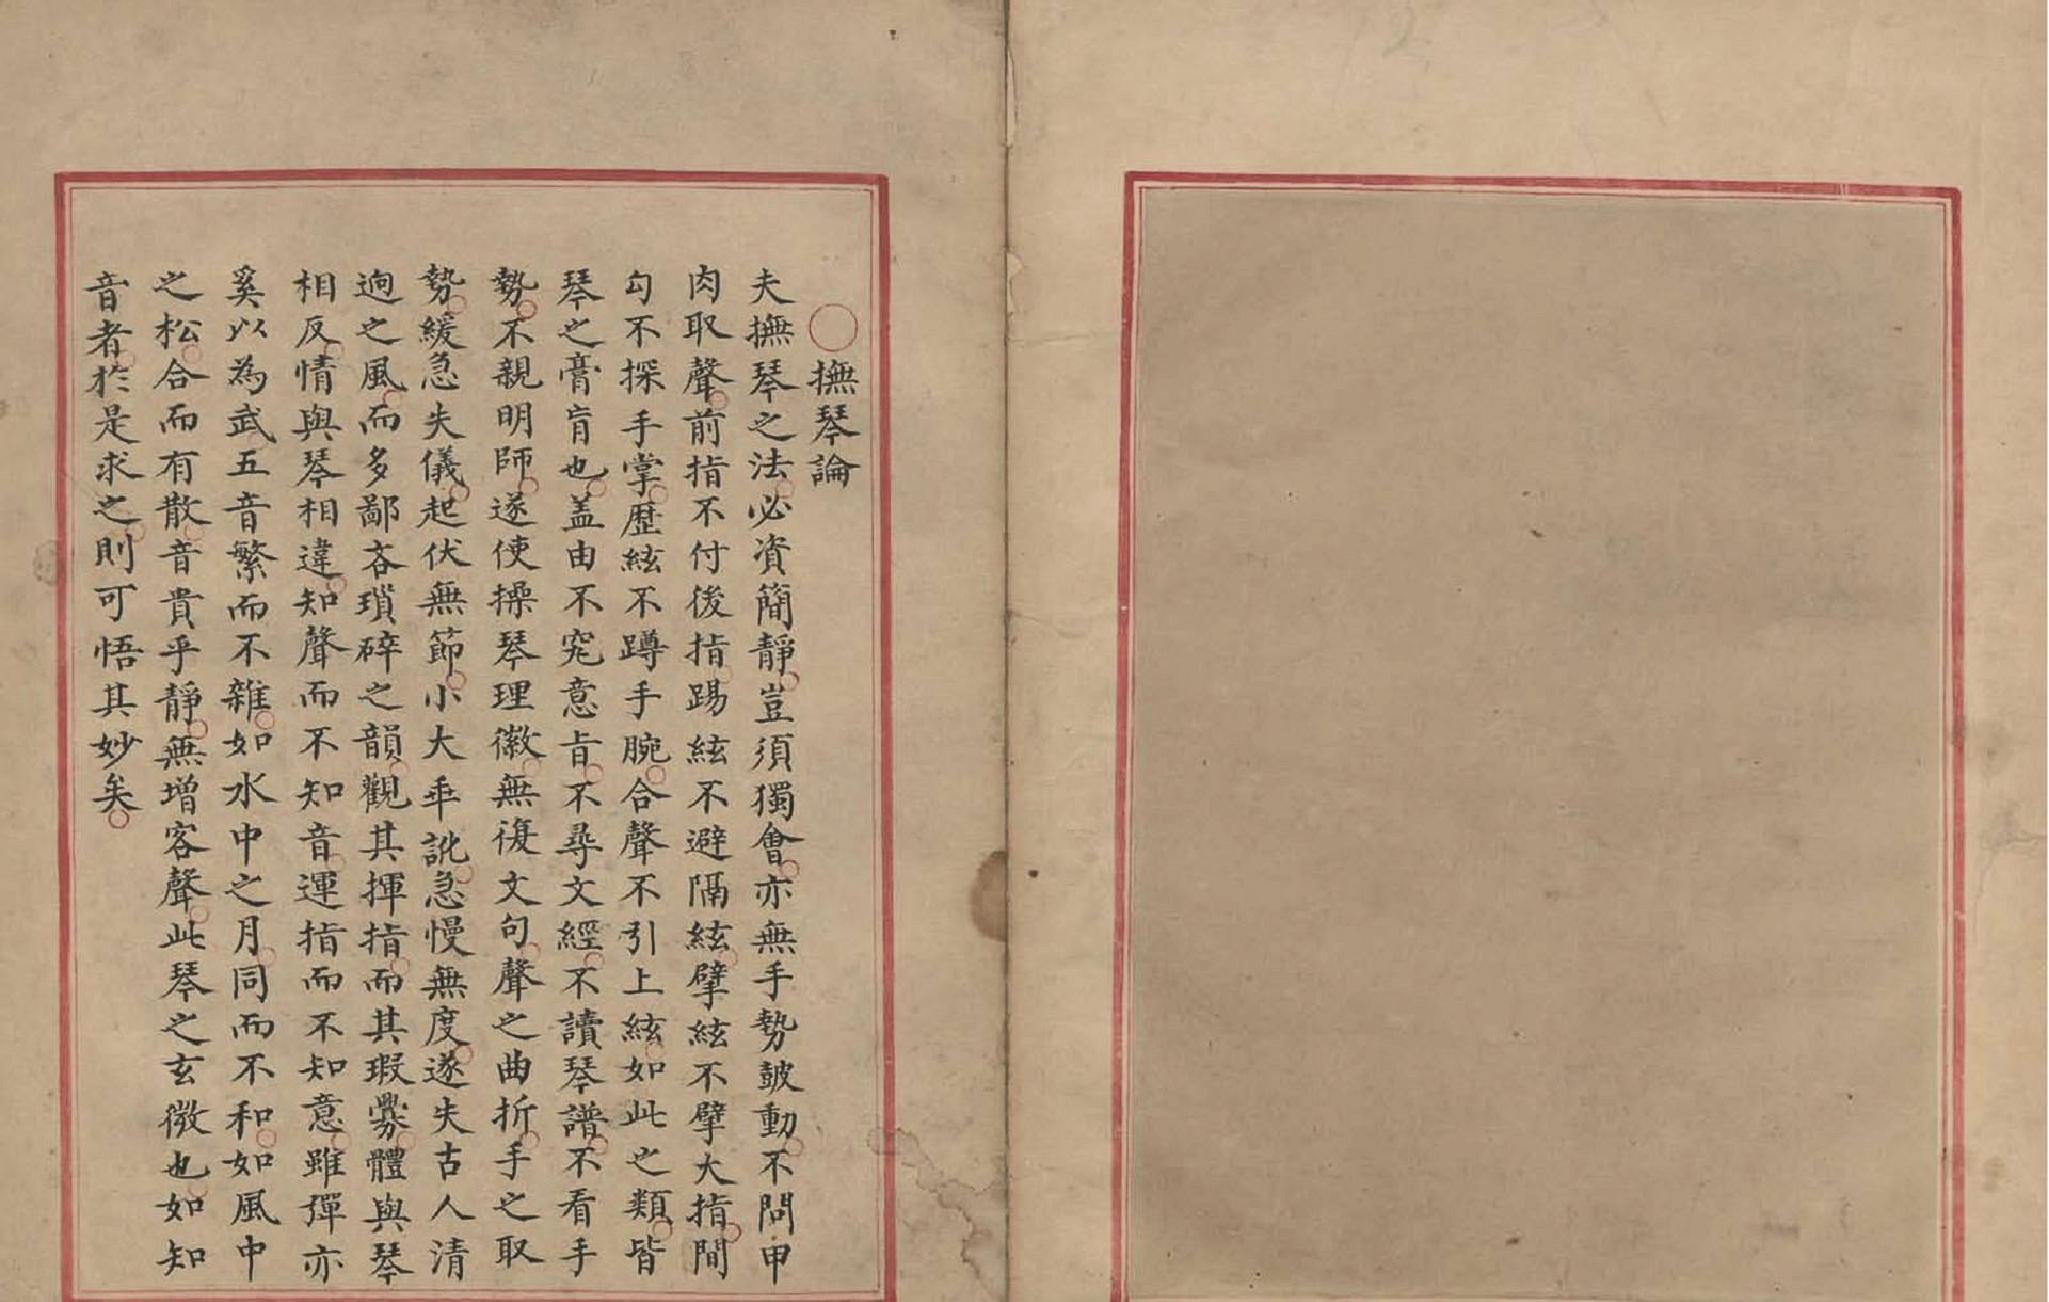 撫琴論
夫撫琴之法必資簡靜豈須獨會亦無手勢皷動不問甲
肉取聲前指不付後指踢絃不避隔絃擘絃不擘大指間
勾不探手掌歷絃不蹲手腕合聲不引上絃如此之類皆
琴之膏肓也盖由不究意旨不尋文經不讀琴譜不看手
勢不親明師遂使操琴理徽無復文句聲之曲折手之取
勢緩急失儀起伏無節小大乖訛急慢無度遂失古人清
逈之風而多鄙吝瑣碎之韻觀其揮指而其瑕釁體與琴
相反情與琴相違知聲而不知音運指而不知意雖彈亦
奚以為武五音繁而不雜如水中之月同而不和如風中
之松合而有散音貴乎靜無增客聲此琴之玄微也如知
音者於是求之則可悟其妙矣